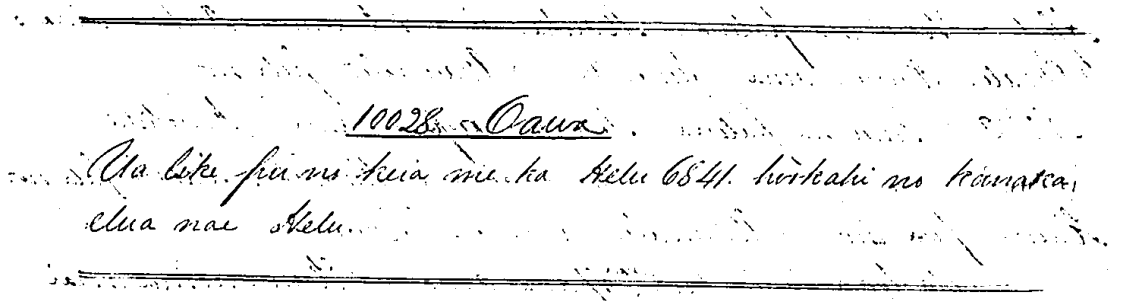 10028, Oawa
Ua like pu no keia me ka Helu 6841. hookahi no kanaka,
elua nae Helu.